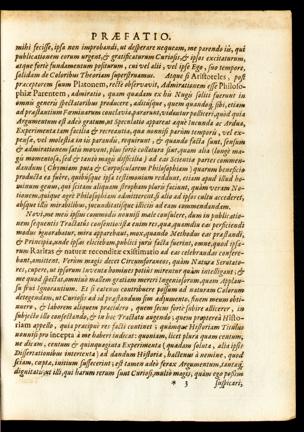 PRÆFATIO.
mihi fecisse, ipsa non improbandi, ut desperare nequeam, me parendo iis, qui
publicationem eorum urgent, & gratificaturum Curiosis, & ipsos excitaturum,
atque forte fundamentum positurum, cui vel alii, vel ipse Ego, suo tempore,
solidam de Coloribus Theoriam superstruamus. Atque si Aristoteles, post
præceptorem suum Platonem, recte observavit, Admirationem esse Philoso-
phiæ Parentem, admiratio, quam quædam ex his Nugis soliti fuerunt in
omni generis spectatoribus producere, aditusque, quem quandoque sibi, etiam
ad præstantium Feminarum conclavia, pararunt, videntur polliceri, quod quia
Argumentum est adeo gratum, ac Speculatio apparet æque Jucunda ac Ardua,
Experimenta tam facilia & recreativa, qua nonnisi parum temporis, vel ex-
pensæ, vel molestiæ in iis parandis, requirunt, & quando facta sunt, sensum
& admirationem satis movent, plus forte collatura sint, quam alia (longe ma-
gis momentosa, sed & tanto magis difficilia) ad eas Scientia partes commen-
dandum (Chymiam puta & Corpuscularem Philosophiam) quarum benefi-
producta ea fuere, quibusque ipsa testimonium reddunt, etiam apud illud ho-
minum genus, qui scitam aliquam stropham pluris faciunt, quam veram No-
tionem, quique ægre Philosophiam admitterent si alio ad ipsos cultu accederet,
absque illis mirabilibus, jucunditatisque illiciis ad eam commendandam.
Novi, me meis ipsius commodis nonnisi male consulere, dum in publicatio-
nem sequentis Tractatus consentio: ista enim res, qua, quamdiu eas perficiendi
modus ignorabatur, mira apparebant, mox, quando Methodus eas præstandi,
& Principia, unde ipsas eliciebam, publici juris facta fuerint, omne, quod ipsa-
rum Raritas & naturæ reconditæ existimatio ad eas celebrandas confere-
bant, amittent. Verum magis decet Circumforaneos, quam Naturæ Scrutato-
res, cupere, ut ipsorum inventa homines potius mirentur quam intelligant; &
me quod spectat, omnino mallem gratiam mereri Ingeniosorum, quam Applau-
su frui Ignorantium. Et si tantum contribuere possum ad naturam Colorum
detegendam, ut Curiosis ad id præstandum sim adjumento, finem meum obti-
nuero, & laborem aliquem præcidero, quem secus forte subire allicerer, in
subjecto illo consectando, & in hoc Tractatu augendo; quem propterea Histo-
riam appello, quia præcipui res facti continet; quamque Historiam Titulus
nonnisi pro incepta à me haberi indicat: quoniam, licet plura quam centum,
ne dicam, centum & quinquaginta Experimenta (quædam soluta, alia ipsis
Dissertationibus intertexta) ad dandum Historiæ, hactenus à nemine, quod
sciam, cœptæ, initium suffecerint; est tamen adeo ferax Argumentum, tantæq;
dignitatis, ut illi, qui harum rerum sunt Curiosi, multo magis, quam ego possim
* 3 suspicari,